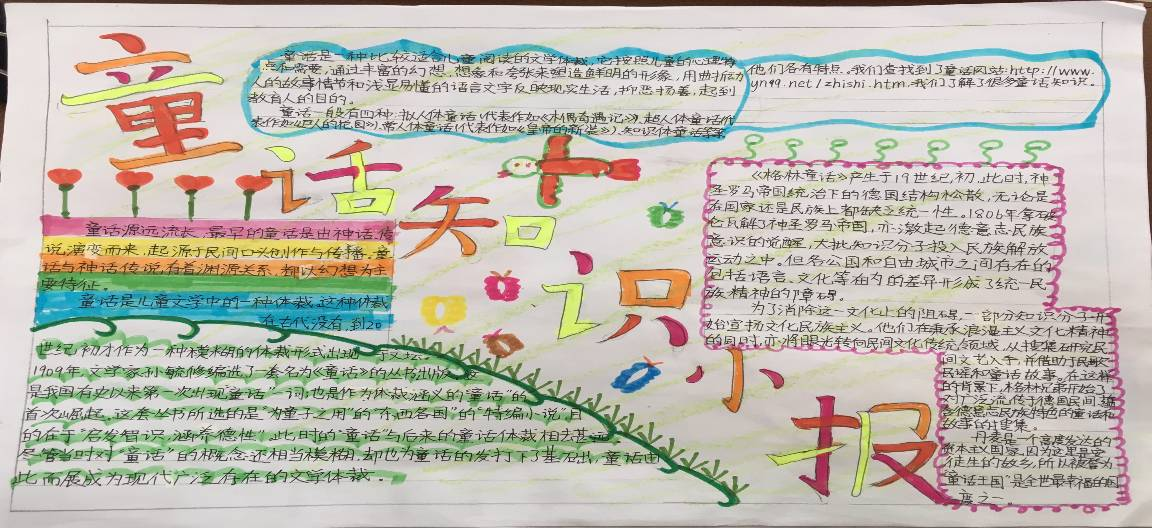 童话知识小报
童话是一种比较适合儿童阅读的文学体裁，它按照儿童的心理特
点和需要，通过丰富的幻想，想象和夸张来塑造鲜明的形象，用曲折动
人的故事情节和浅显易懂的语言文字反映现实生活，抑恶扬善，起到
教育人的目的。
童话一般有四种：拟人体童话（代表作如《木偶奇遇记》），超人体童话（代
表作如《巨人的花园》），常人体童话（代表作如《皇帝的新装》），知识体童话等等
他们各有特点。我们查找到了童话网站：http://www.
yn99.net/zhishi.htm，我们了解了很多童话知识。
童话源远流长，最早的童话是由神话、传
说演变而来，起源于民间口头创作与传播。童
话与神话传说有着渊源关系，都以幻想为主
要特征。
童话是儿童文学中的一种体裁。这种体裁
在古代没有，到20
世纪初才作为一种模糊的体裁形式出现于文坛。
1909年，文学家孙毓修编选了一套名为《童话》的丛书出版，这
是我国有史以来第一次出现"童话"一词，也是作为体裁涵义的"童话"的
首次崛起。这套丛书所选的是"为童子之用"的"东西各国"的"特编小说"目
的在于"启发智识，涵养德性"，此时的"童话"与后来的童话体裁相去甚远。
尽管当时对"童话"的概念还相当模糊，却也为童话的发打下了基石出，童话由
此而展成为现代广泛存在的文学体裁。
《格林童话》产生于19世纪初，此时，神
圣罗马帝国统治下的德国结构松散，无论是
在国家还是民族上都缺乏统一性。1806年拿破
仑瓦解了神圣罗马帝国，亦激起德意志民族
意识的觉醒，大批知识分子投入民族解放
运动之中。但各公国和自由城市之间有存在的
包括语言、文化等在内的差异形成了统一民
族精神的障碍。
为了消除这一文化上的阻碍，一部分知识分子开
始宣扬文化民族主义。他们在秉承浪漫主义文化精神
的同时，亦将眼光转向民间文化传统领域，从搜集研究民
间文艺入手，并借助于民歌
民谣和童话故事。在这样
的背景下，格林兄弟开始了
对广泛流传于德国民间，
德意志民族特色的童话和
故事的搜集。
丹麦是一个高度发达的
资本主义国家，因为这里是安
徒生的故乡，所以被誉为
"童话王国"是全世最幸福的国
度之一。